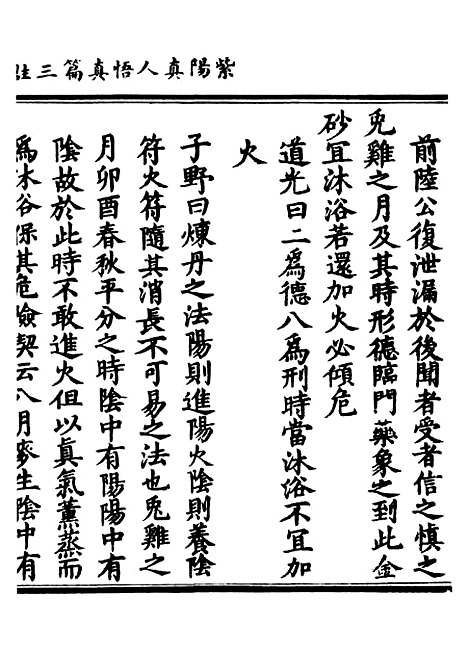 紫陽真人悟真篇三註
前陸公復泄漏於後聞者受者信之慎之
兎雞之月及其時形德臨門藥象之到此金
砂宜沐浴若還加火必傾危
道光曰二爲德八爲刑時當沐浴不宜加
火
子野曰煉丹之法陽則進陽火陰則養陰
符火符隨其消長不可易之法也兎雞之
月卯酉春秋平分之時陰中有陽陽中有
陰故於此時不敢進火但以真氣薰蒸而
爲沐浴保其危險契云八月麥生陰中有